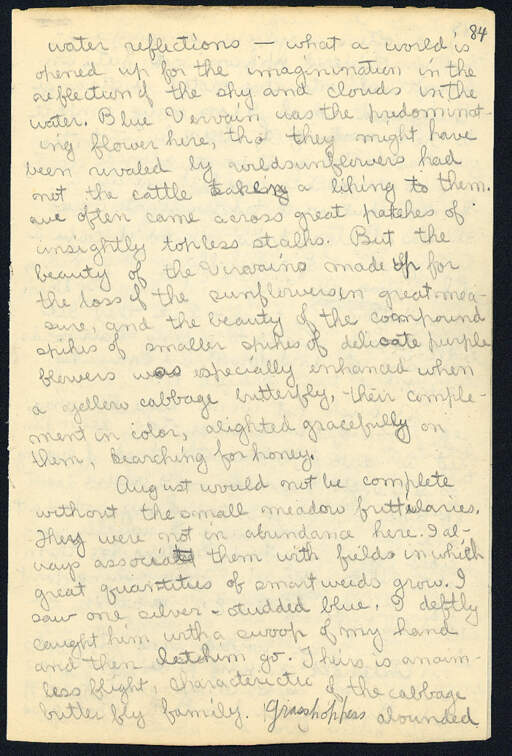 84
water reflections — what a world is
opened up for the imaginination in the
reflection of the sky and clouds in the
water. Blue Vervain was the predominat-
ing flower here, tho they might have
been rivaled by wildsunflowers had
not the cattle taking a liking to them.
We often came across great patches of
unsightly topless stalks. But the
beauty of the Vervains made up for
the loss of the sunflowers in great mea-
sure, and the beauty of the compound
spikes of smaller spikes of delicate purple
flowers was especially enhanced when
a yellow cabbage butterfly, their comple-
ment in color, alighted gracefully on
them, searching for honey.
August would not be complete
without the small meadow frittilaries.
They were not in abundance here. I al-
ways associate them with fields in which
great quantities of smartweeds grow. I
saw one silver-studded blue. I deftly
caught him with a swoop of my hand
and then let him go. Theirs is an aim-
less flight, characterictic of the cabbage
butterfly family. Grasshoppers abounded